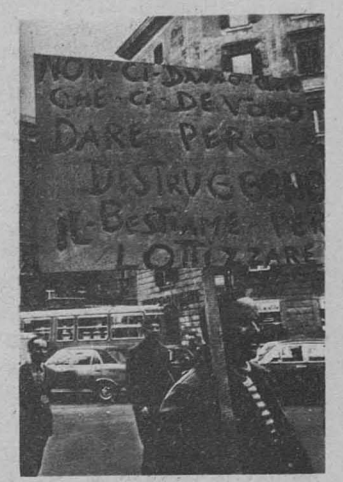 NON CI DANNO CIO
CHE CI DEVONO
DARE PERO
DISTRUGGONO
IL BESTIAME PER
LOTTIZZARE